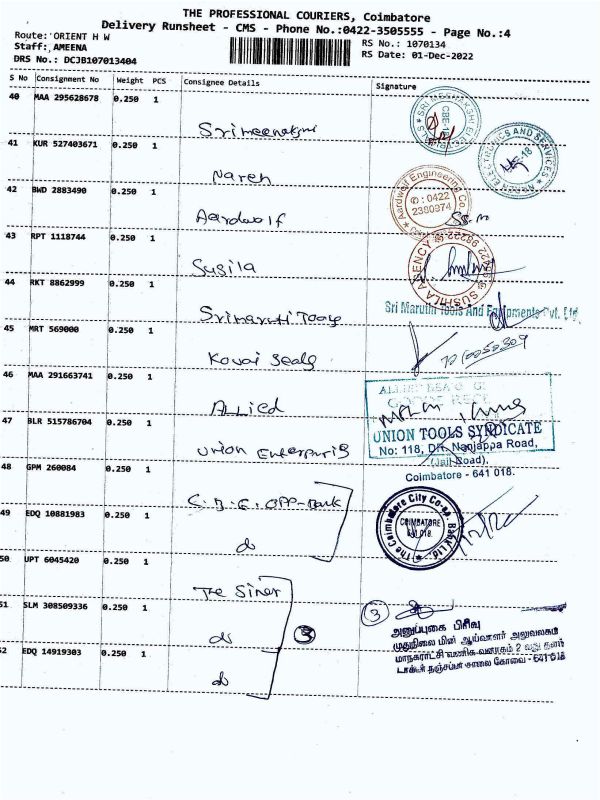 THE PROFESSIONAL COURIERS, Coimbatore
Delivery Runsheet - CMS - Phone No.:0422-3505555 - Page No.:4
Route: ORIENT H W
RS No.: 1070134
Staff: AMEENA
RS Date: 01-Dec-2022
DRS No.: DCJB107013404
S No Consignment No Weight PCS Consignee Details Signature
40 MAA 295628678 0.250 1
Srimeenakshi
41 KUR 527403671 0.250 1
Naren
42 BWD 2883490 0.250 1
Aardwolf
Aardwolf Engineering Co.
✆ : 0422
2380374
43 RPT 1118744 0.250 1
Susila
SUSHILA AGENCY
44 RKT 8862999 0.250 1
Srimaruti Tools
Sri Maruthi Tools And Equipments Pvt. Ltd.
45 MRT 569000 0.250 1
Kovai Seals
46 MAA 291663741 0.250 1
Allied
47 BLR 515786704 0.250 1
Union Enterpris
UNION TOOLS SYNDICATE
No: 118, D/r. Nanjappa Road,
(Jail Road),
Coimbatore - 641 018.
48 GPM 260084 0.250 1
The Coimbatore City Co-op. Bank Ltd.
COIMBATORE
641 018.
49 EDQ 10881983 0.250 1
do
50 UPT 6045420 0.250 1
The
51 SLM 308509336 0.250 1
do
3
3
அனுப்புகை பிரிவு
முதுநிலை மின் ஆய்வாளர் அலுவலகம்
மாநகராட்சி வணிக வளாகம் 2 வது தளம்
டாக்டர் நஞ்சப்பா சாலை கோவை - 641 018
52 EDQ 14919303 0.250 1
do